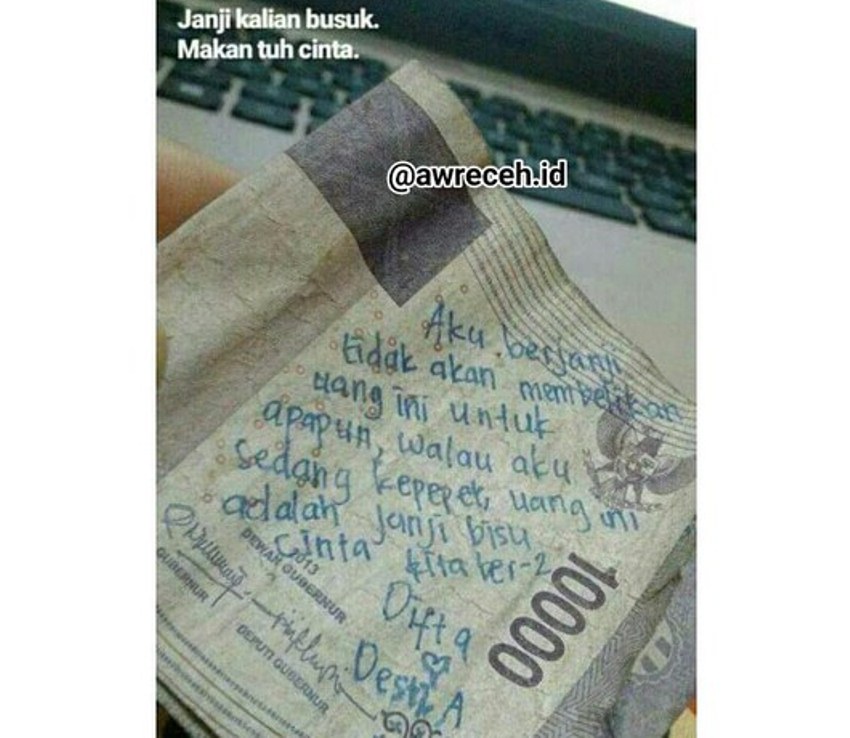 Janji kalian busuk.
Makan tuh cinta.
@awreceh.id
Aku berjanji
tidak akan membelikan
uang ini untuk
apapun, walau aku
sedang kepepet, uang ini
adalah janji bisu
cinta kita ber-2
Difta
Desti A
2013
DEWAN GUBERNUR
GUBERNUR
DEPUTI GUBERNUR
10000